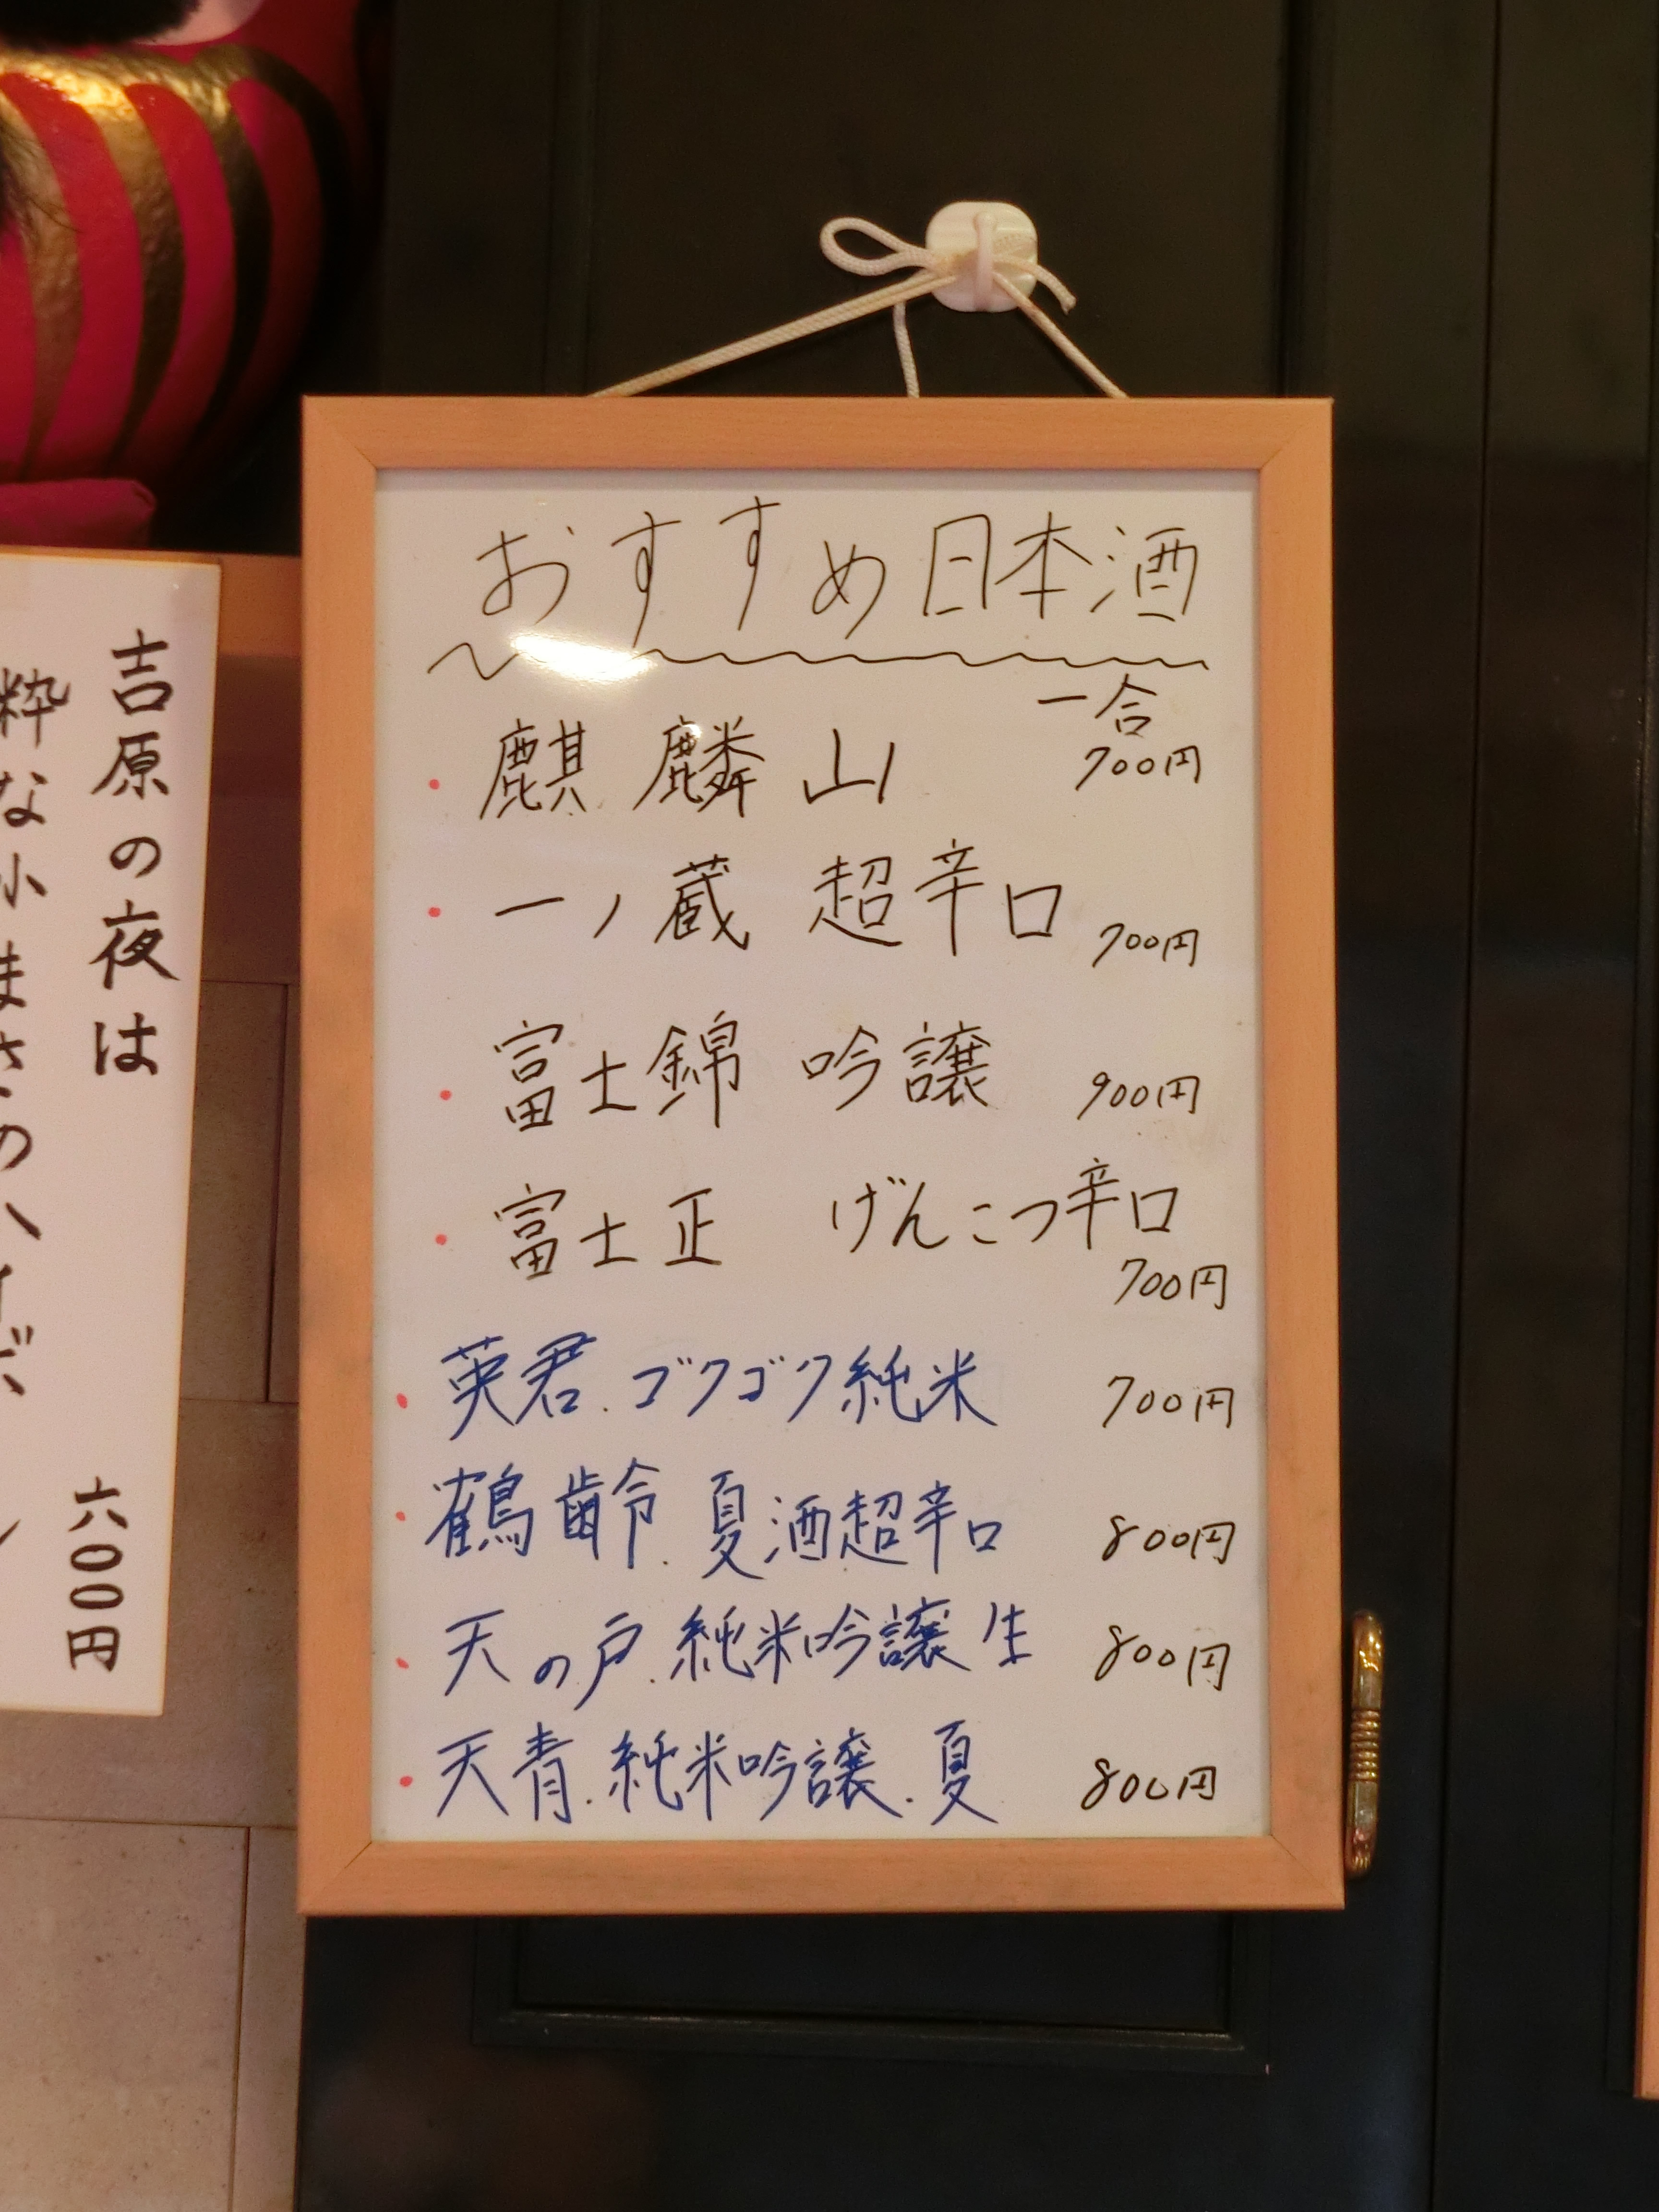 おすすめ日本酒
一合
・麒麟山 700円
・一ノ蔵 超辛口 700円
・富士錦 吟譲 900円
・富士正 げんこつ辛口
700円
・英君.ゴクゴク純米 700円
・鶴齢.夏酒超辛口 800円
・天の戸.純米吟譲生 800円
・天青.純米吟譲.夏 800円
吉原の夜は
粋な小まさのハイボ
六〇〇円